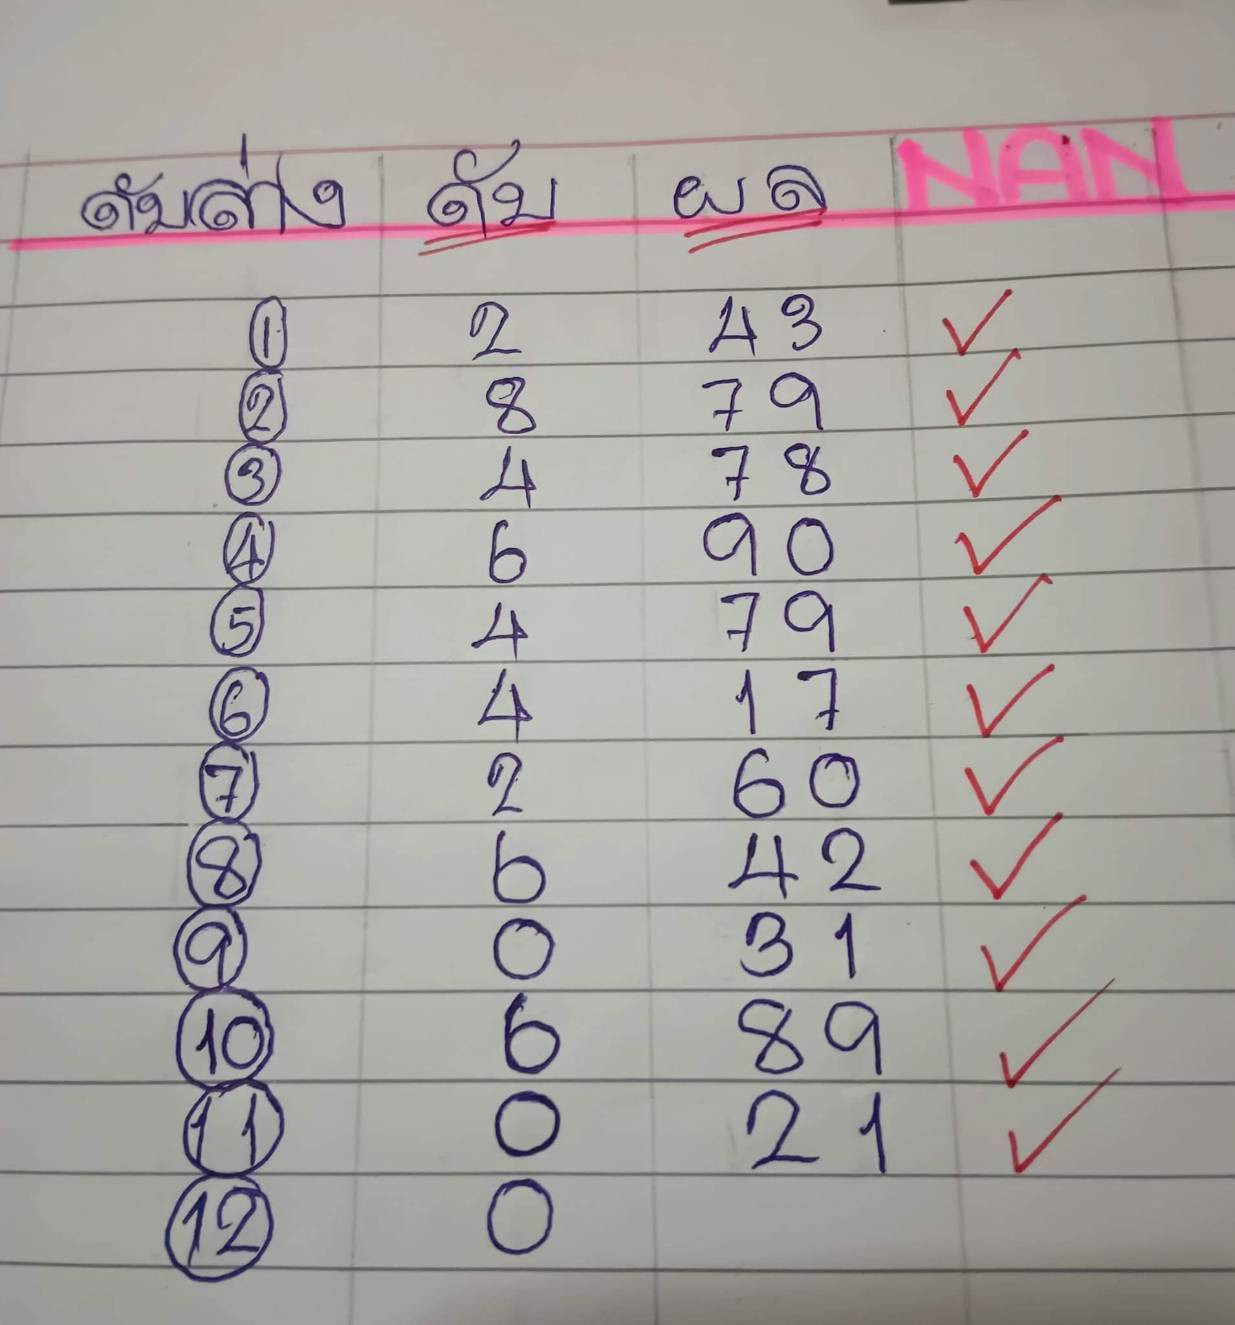 ดับล่าง ดับ ผล NAN
1 2 43 ✓
2 8 79 ✓
3 4 78 ✓
4 6 90 ✓
5 4 79 ✓
6 4 17 ✓
7 2 60 ✓
8 6 42 ✓
9 0 31 ✓
10 6 89 ✓
11 0 21 ✓
12 0